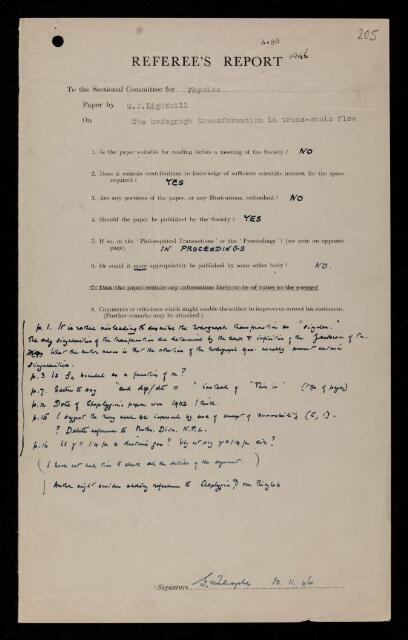 205
A.95
1946
REFEREE'S REPORT
To the Sectional Committee for Physics
Paper by M.J.Lighthill
On The hodograph transformation in trans-sonic flow
1. Is the paper suitable for reading before a meeting of the Society? NO
2. Does it contain contributions to knowledge of sufficient scientific interest for the space
required? YES
3. Are any portions of the paper, or any illustrations, redundant? NO
4. Should the paper be published by the Society? YES
5. If so, in the 'Philosophical Transactions' or the 'Proceedings'? (see note on opposite
page). IN PROCEEDINGS
6. Or could it more appropriately be published by some other body? NO.
7. Does the paper contain any information likely to be of value to the enemy?
8. Comments or criticisms which might enable the author to improve or correct his statement.
(Further remarks may be attached.)
p.1. It is rather misleading to describe the hodograph transformation as "singular."
The only singularities of the transformation are determined by the zeros & infinities of the Jacobian of the
What the author means is that the equation of the hodograph
singularities.
p.3 Is bounded as a function of n?
p.7. Better to say "and dρ/dτ = " instead of "This is" (top of page)
p.12 Date of Chaplygin's paper was 1902 I think.
p.15 I suggest the may be improved by use of concept of summability (C, 1).
? Delete reference to Maths. Divn. N.P.L.
p.16 Is γ = 1.4 for a diatomic gas? Why not say γ = 1.4 for air?
(I have not had time to check all the details of the argument.)
Author might consider adding reference to Chaplygin & von Ringleb
Signature G. Temple 10.11.46